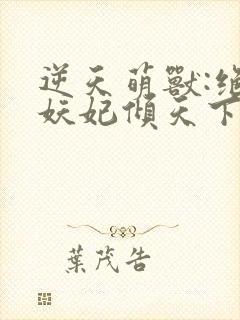 逆天萌獸:絕
妖妃傾天下
葉茂告